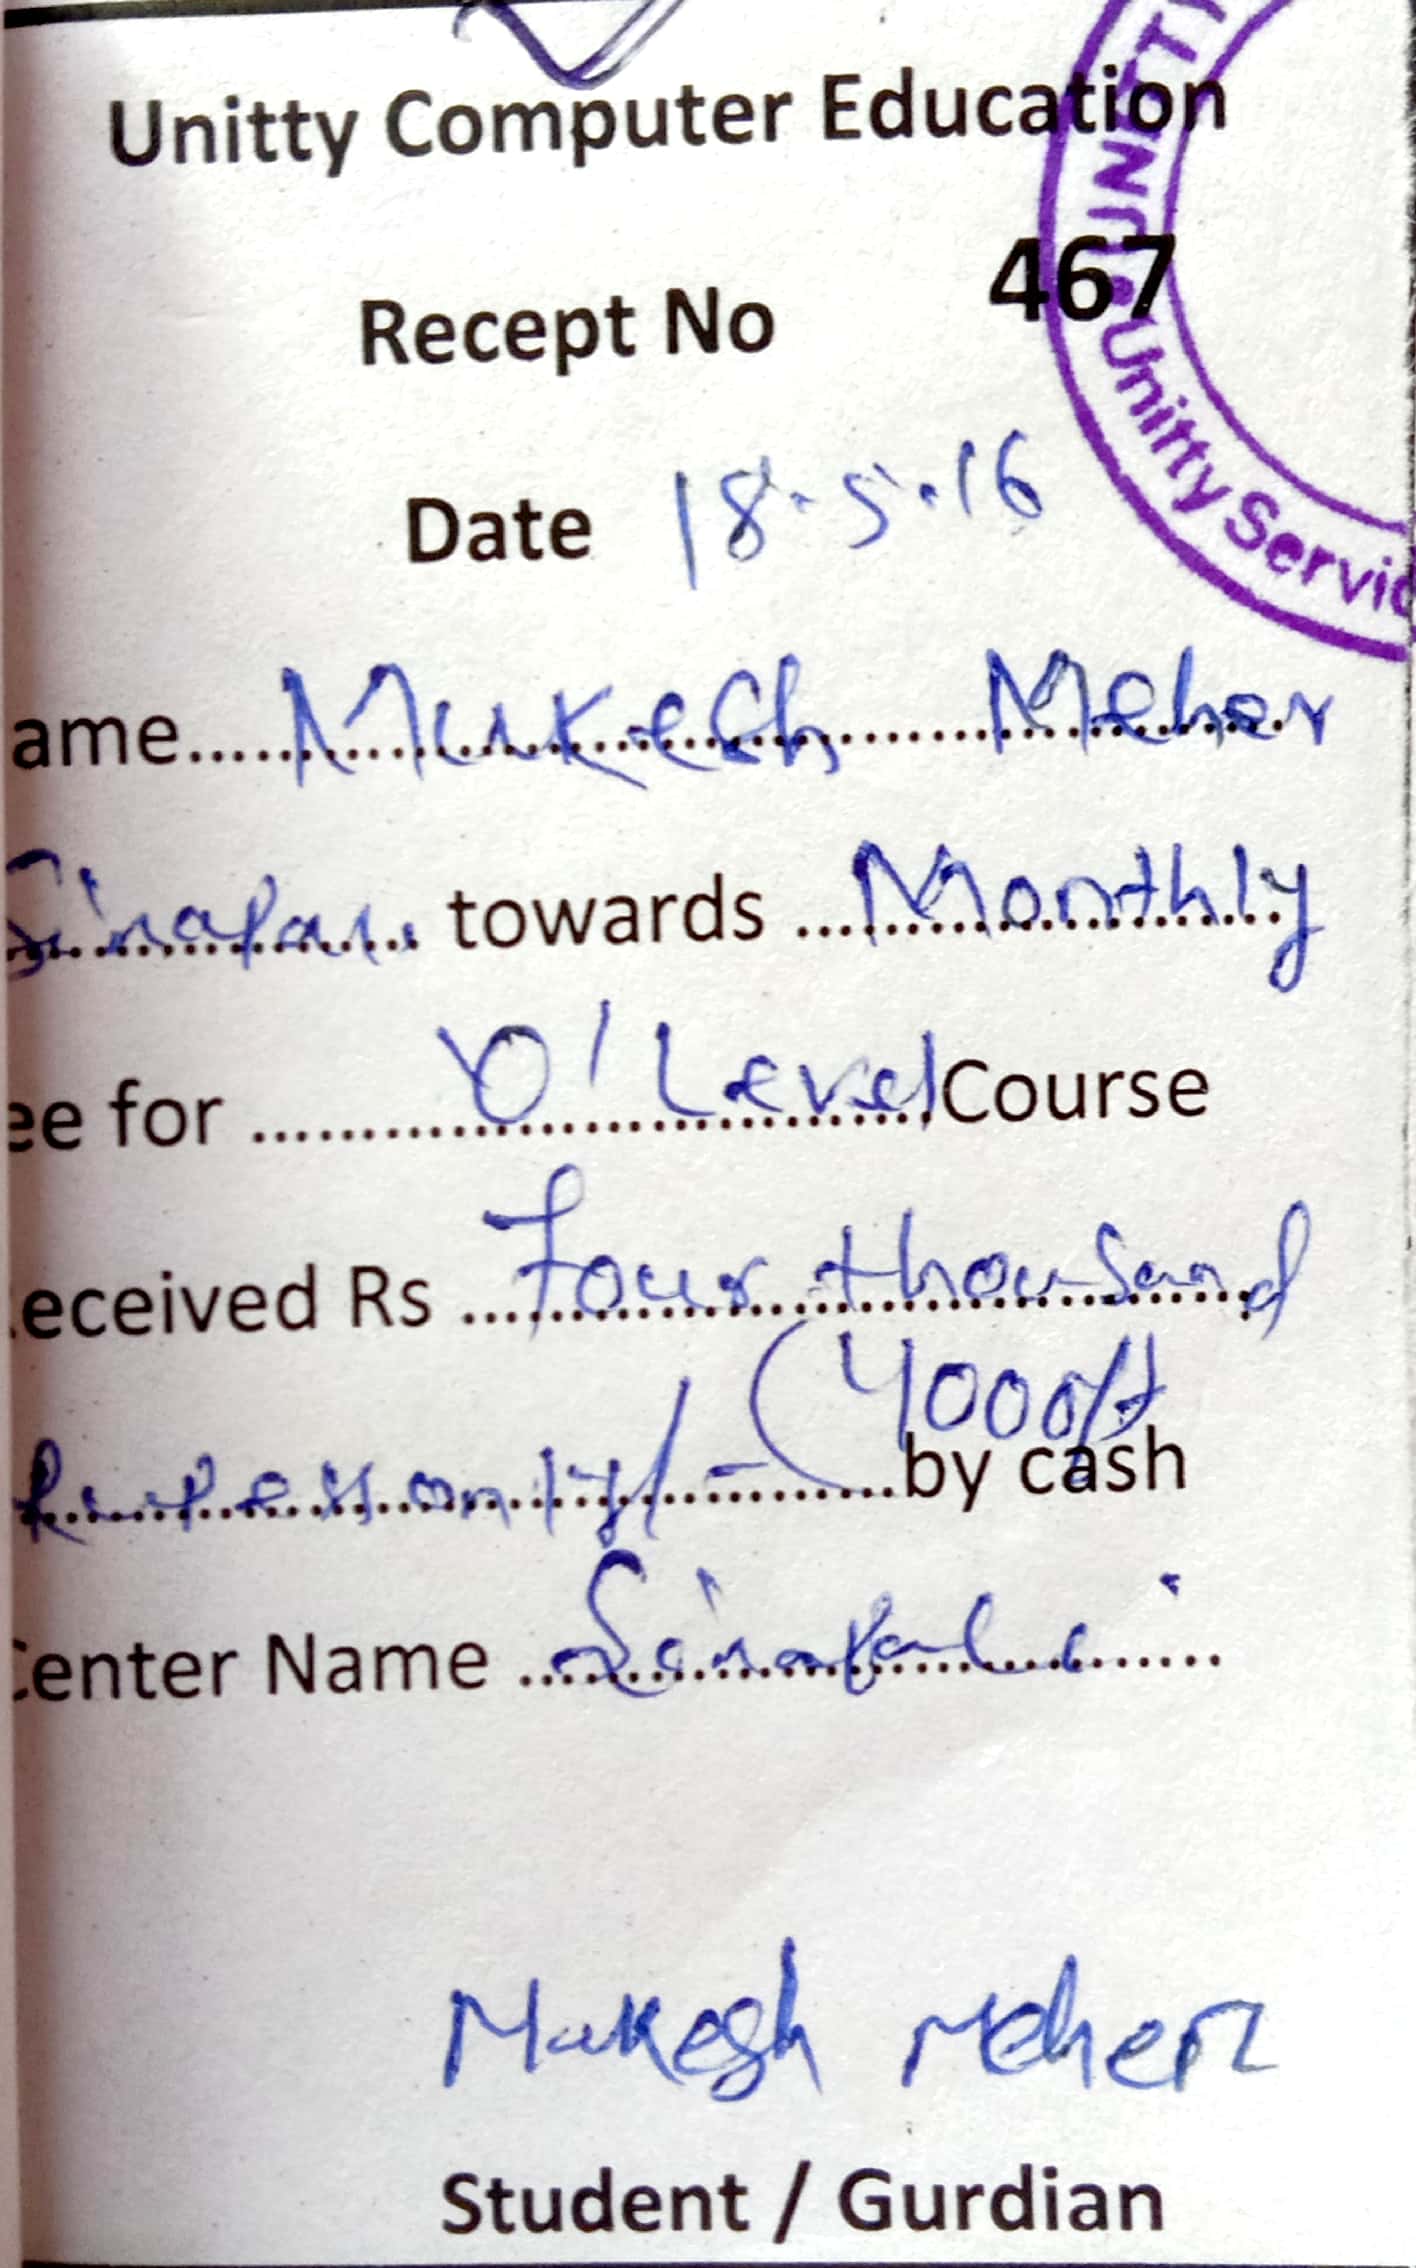 Unitty Computer Education
467
Recept No
Date 18.5.16
ame..... Mukesh Meher
Sinapali towards ... Monthly
ee for ........ O' Level Course
eceived Rs ... Four thousand
(4000/-
Rupees only/- .........by cash
Center Name ... Sinapali
Mukesh Meher
Student / Gurdian
UNITTY
Unitty Servic